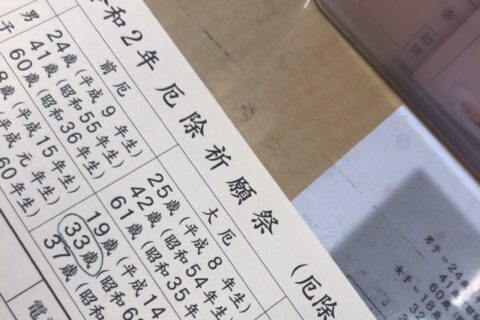 令和2年 厄除祈願祭 (厄除
前厄
大厄
男子
24歳(平成9年生)
41歳(昭和55年生)
60歳(昭和36年生)
25歳(平成8年生)
42歳(昭和54年生)
61歳(昭和35年生)
8歳(平成15年生)
平成元年生)
60年生)
19歳(平成14
33歳(昭和6
37歳(昭和
電
※
初穂
男子=24歳
41歳
60歳
女子=18歳